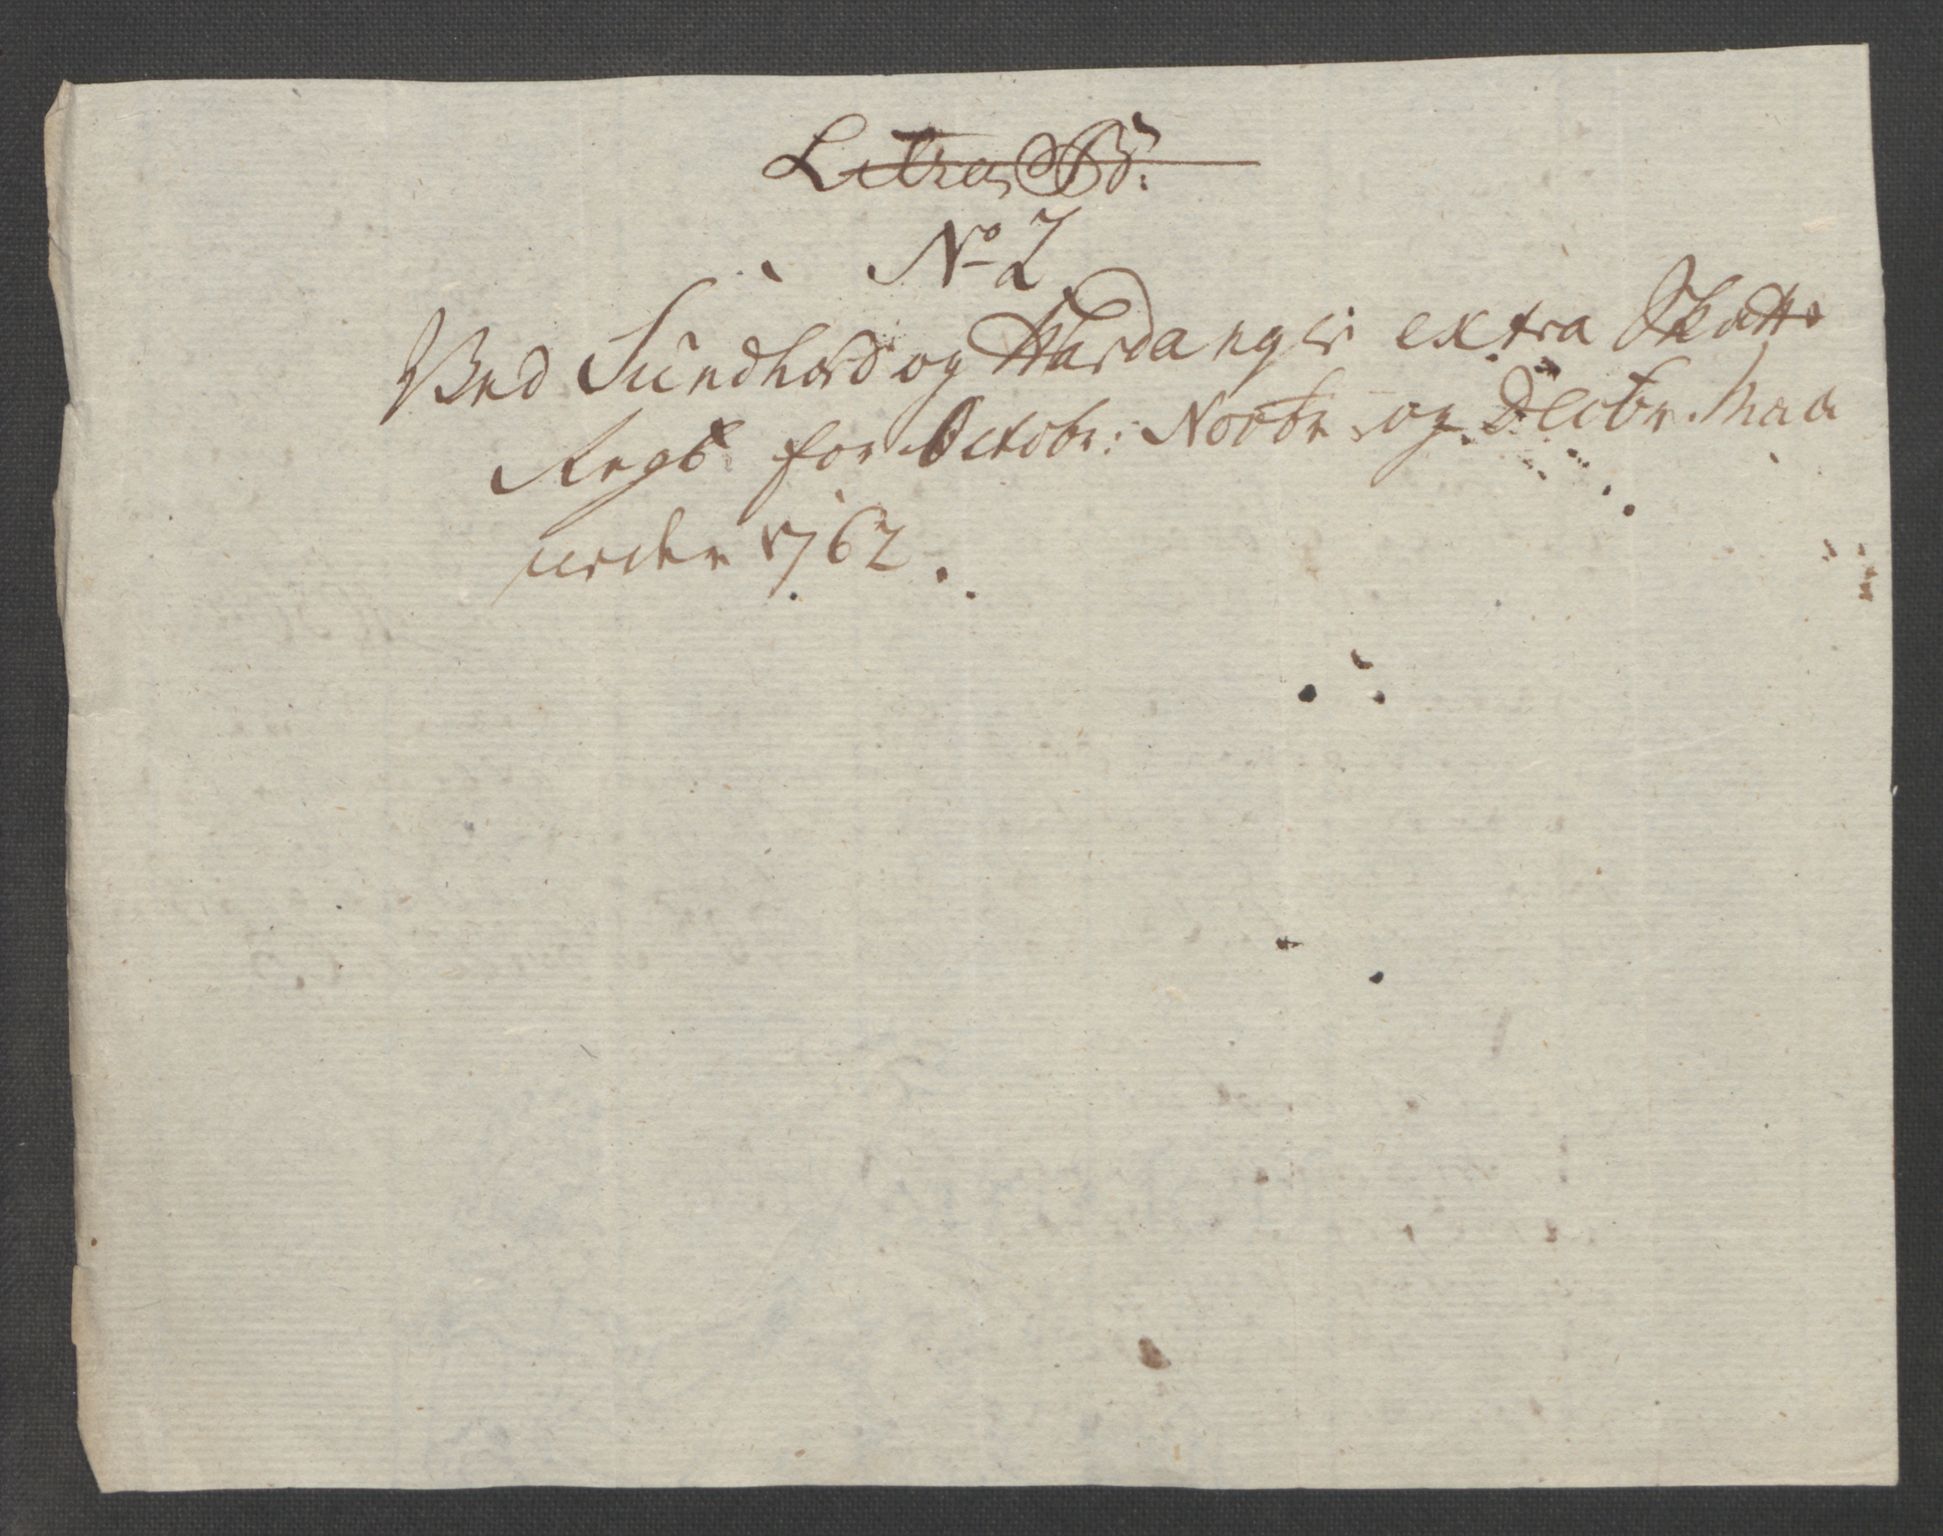 Litra B:
No 2
Ved Sundhord og Hardanger extra Skatte
Regsk for Octobr: Novbr og Decbr. Maa
neder 1762.